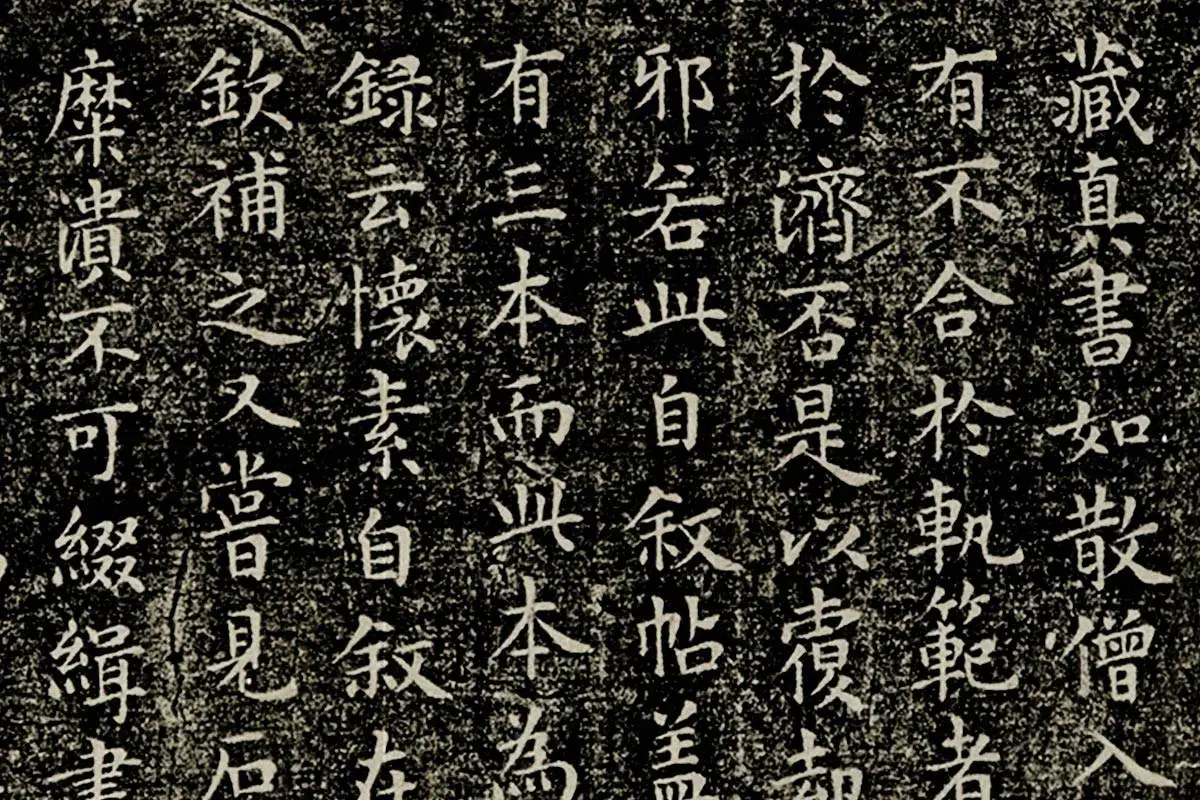 藏真書如散僧入
有不合於軌範者
於濟否是以覆却
邪若此自敘帖蓋
有三本而此本為
錄云懷素自敘在
欽補之又嘗見石
糜潰不可綴緝書